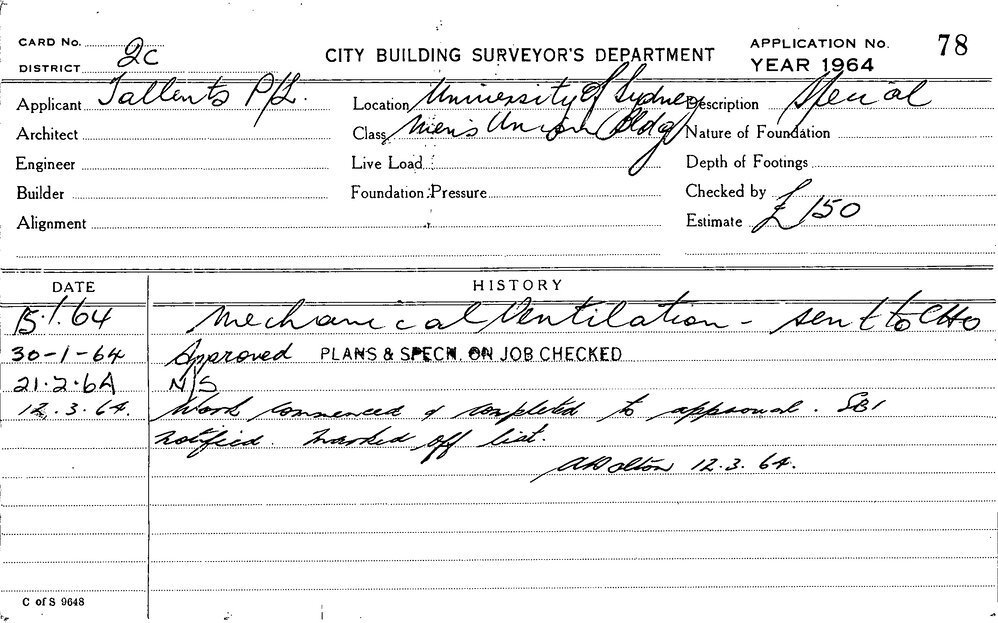 CARD No.
DISTRICT 2c
CITY BUILDING SURVEYOR'S DEPARTMENT
APPLICATION No. 78
YEAR 1964
Applicant Tallents P/L.
Location University of Sydney
Description Special
Architect
Class Men's Union Bldg
Nature of Foundation
Engineer
Live Load
Depth of Footings
Builder
Foundation Pressure
Checked by
Alignment
Estimate £150
DATE
HISTORY
15.1.64 Mechanical Ventilation - sent to CHO
30-1-64 Approved PLANS & SPECN. ON JOB CHECKED
21.2.64 N/S
12.3.64. Work commenced & completed to approval. SBI
notified. Marked off list.
ADolton 12.3.64.
C of S 9648